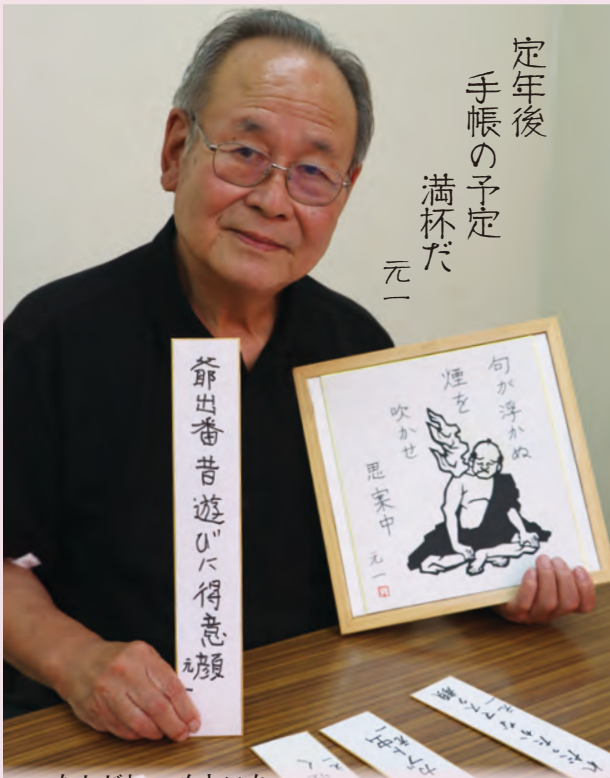 定年後
手帳の予定
満杯だ
元一
爺出番昔遊びに得意顔
元一
句が浮かぬ
煙を
吹かせ
思案中
元一